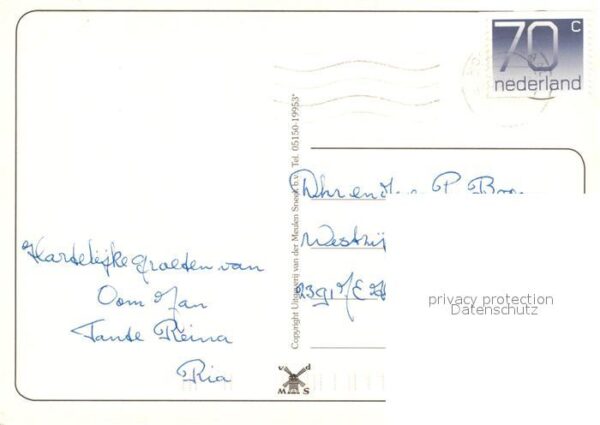 70 c
nederland
Copyright Uitgeverij van der Meulen Sneek b.v. Tel. 05150-19953*
Dhr en Mevr P.
Hartelijke groeten van
Oom Jan
Tante Reina
Ria
2391
privacy protection
Datenschutz
v d
M S